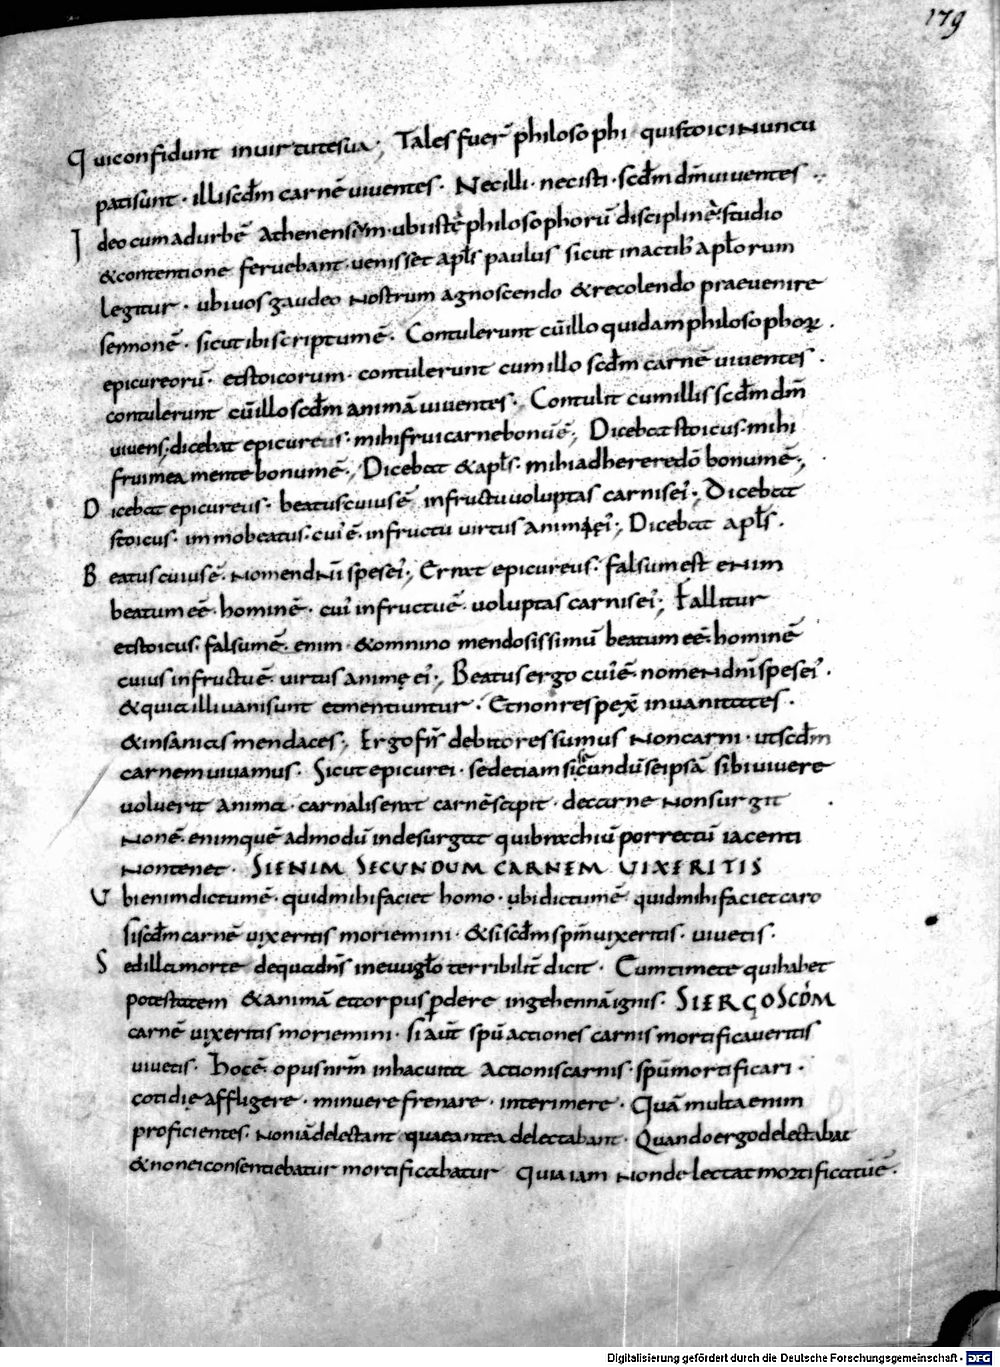 179
Qui confidunt in uirtute sua; Tales fuer̄ philosophi qui stoici nuncu
pati sunt · illi scd̄m carnē uiuentes · Nec illi · nec isti · scd̄m dm̄ uiuentes
Ideo cum ad urbē Atheniensium · ubi istę philosophorū disciplinę · studio
& contentione feruebant · uenisset apl̄s paulus sicut in actib; apl̄orum
legitur · ubi uos gaudeo nostrum agnoscendo & recolendo praeuenire
sermonē · sicut ibi scriptum ē · Contulerunt cū illo quidam philosophoꝝ ·
epicureorū · et stoicorum · contulerunt cum illo scd̄m carnē uiuentes ·
contulerunt cū illo scd̄m animā uiuentes · Contulit cum illis scd̄m dm̄
uiuens; dicebat epicureus · mihi frui carne bonū ē; Dicebat stoicus · mihi
frui mea mente bonum ē; Dicebat & apl̄s · mihi adherere dō bonum ē;
Dicebat epicureus · beatus cuius ē in fructu uoluptas carnis ei'; Dicebat
stoicus · immo beatus · cui' ē · in fructu uirtus animę ei'; Dicebat apl̄s ·
Beatus cuius ē · nomen dn̄i spes ei'; Errat epicureus · falsum est enim
beatum eē · hominē · cui' in fructu ē · uoluptas carnis ei'; Fallitur
et stoicus · falsum ē · enim · & omnino mendosissimū beatum eē · hominē
cuius in fructu ē · uirtus animę ei'; Beatus ergo cui' ē · nomen dn̄i spes ei' ·
& quia illi uani sunt et mentiuntur · Et non respex̄ in uanitates ·
& insanias mendaces; Ergo fr̄s debitores sumus non carni · ut scd̄m
carnem uiuamus · Sicut epicurei · sed etiam si secundū se ipsā sibi uiuere
uoluerit anima · carnalis erat carnē sapit · de carne non surgit
Non ē · enim quē admodū inde surgat qui brachiū porrectū iacenti
non tenet · SI ENIM SECUNDUM CARNEM UIXERITIS
Ubi enim dictum ē · quid mihi faciet homo · ubi dictum ē · quid mihi faciet caro
si scd̄m carnē uixeritis moriemini · & si scd̄m spm̄ uixeritis · uiuetis ·
Sed illa morte de qua dn̄s in euuḡlo terribilit̄ dicit · Eum timete qui habet
potestatem & animā et corpus ꝑdere in gehennā ignis · SI ERGO SCD̄M
carnē uixeritis moriemini · si aūt spū actiones carnis mortificaueritis
uiuetis · Hoc ē · opus nr̄m in hac uita Actionis carnis · spū mortificari ·
cotidie affligere · minuere frenare · interimere · Quā multa enim
proficientes · non iā delectant quae antea delectabant · Quando ergo delectabat
& non ei consentiebatur mortificabatur Quia iam non delectat mortificatū ē ·
Digitalisierung gefördert durch die Deutsche Forschungsgemeinschaft - DFG